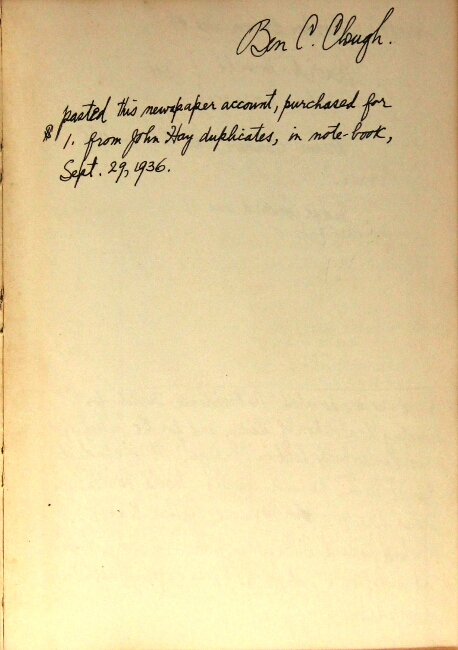 Ben C. Clough.
pasted this newspaper account, purchased for
$1. from John Hay duplicates, in note-book,
Sept. 29, 1936.